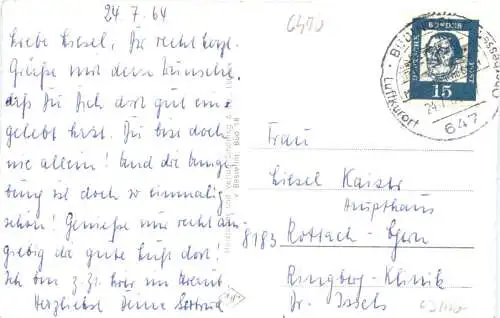 24.7.64
Liebe Liesel, Dir recht herzl.
Grüße mit dem Wunsche,
daß Du Dich dort gut ein-
gelebt hast. Du bist doch
nie allein! Und die Umge-
bung ist doch so einmalig
schön! Genieße nur recht aus-
giebig die gute Luft dort!
Ich bin z. Zt. hier im
Herzlichst Deine Gertrud
DEUTSCHE BUNDESPOST
15
Luftkurort
647
Frau
Liesel Kaiser
Haupthaus
8183 Rottach-Egern
Ringberg-Klinik
Dr. Issels